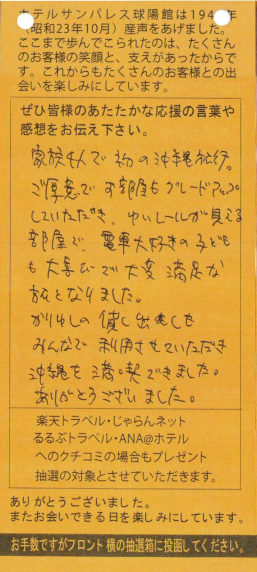 ホテルサンパレス球陽館は194 年
（昭和23年10月）産声をあげました。
ここまで歩んでこられたのは、たくさん
のお客様の笑顔と、支えがあったからで
す。これからもたくさんのお客様との出
会いを楽しみにしています。
ぜひ皆様のあたたかな応援の言葉や
感想をお伝え下さい。
家族4人で初の沖縄旅行。
ご厚意でお部屋もグレードアップ
していただき、ゆいレールが見える
部屋で、電車大好きの子ども
も大喜びで大変満足な
旅となりました。
かりゆしの貸し出しも
みんなで利用させていただき
沖縄を満喫できました。
ありがとうございました。
楽天トラベル・じゃらんネット
るるぶトラベル・ANA@ホテル
へのクチコミの場合もプレゼント
抽選の対象とさせていただきます。
ありがとうございました。
またお会いできる日を楽しみにしています。
お手数ですがフロント横の抽選箱に投函してください。